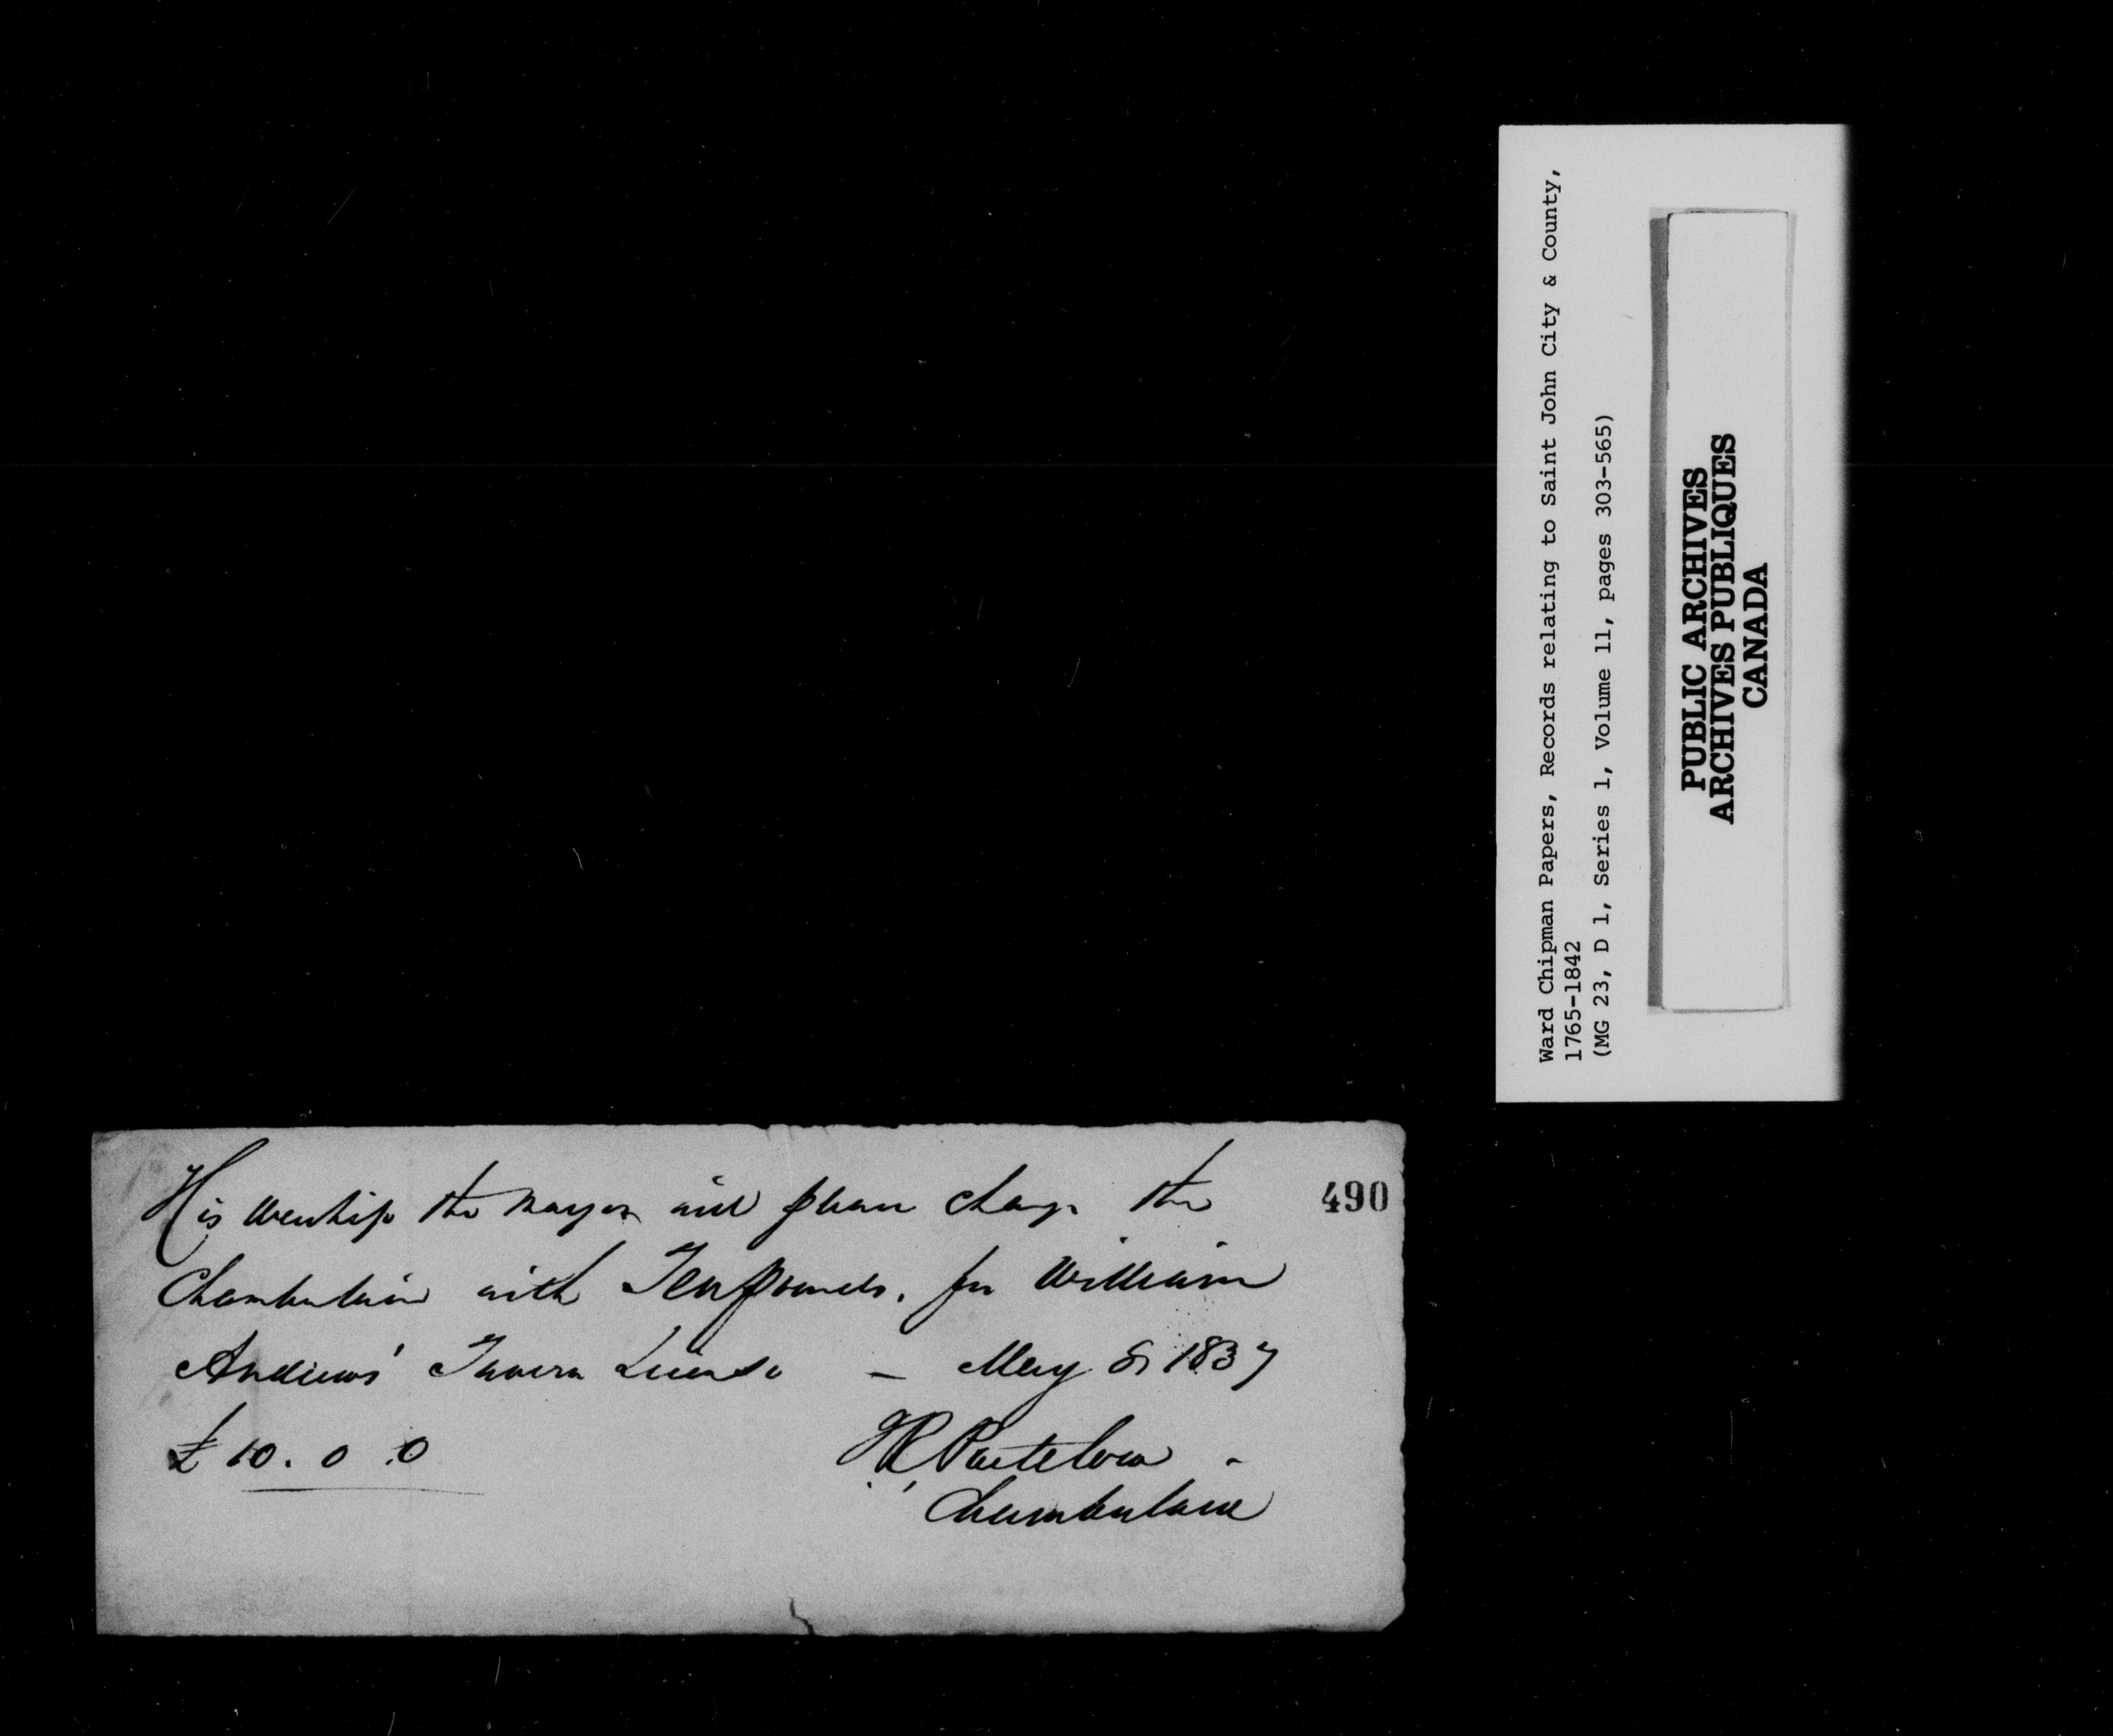 His Worship the Mayor will please charge the
Chamberlain with Ten pounds. for William
Andrews' Tavern License — May 8, 1837
£10. 0 .0
Partelow -
Chamberlain
490
Ward Chipman Papers, Records relating to Saint John City & County,
1765-1842
(MG 23, D 1, Series 1, Volume 11, pages 303-565)
PUBLIC ARCHIVES
ARCHIVES PUBLIQUES
CANADA